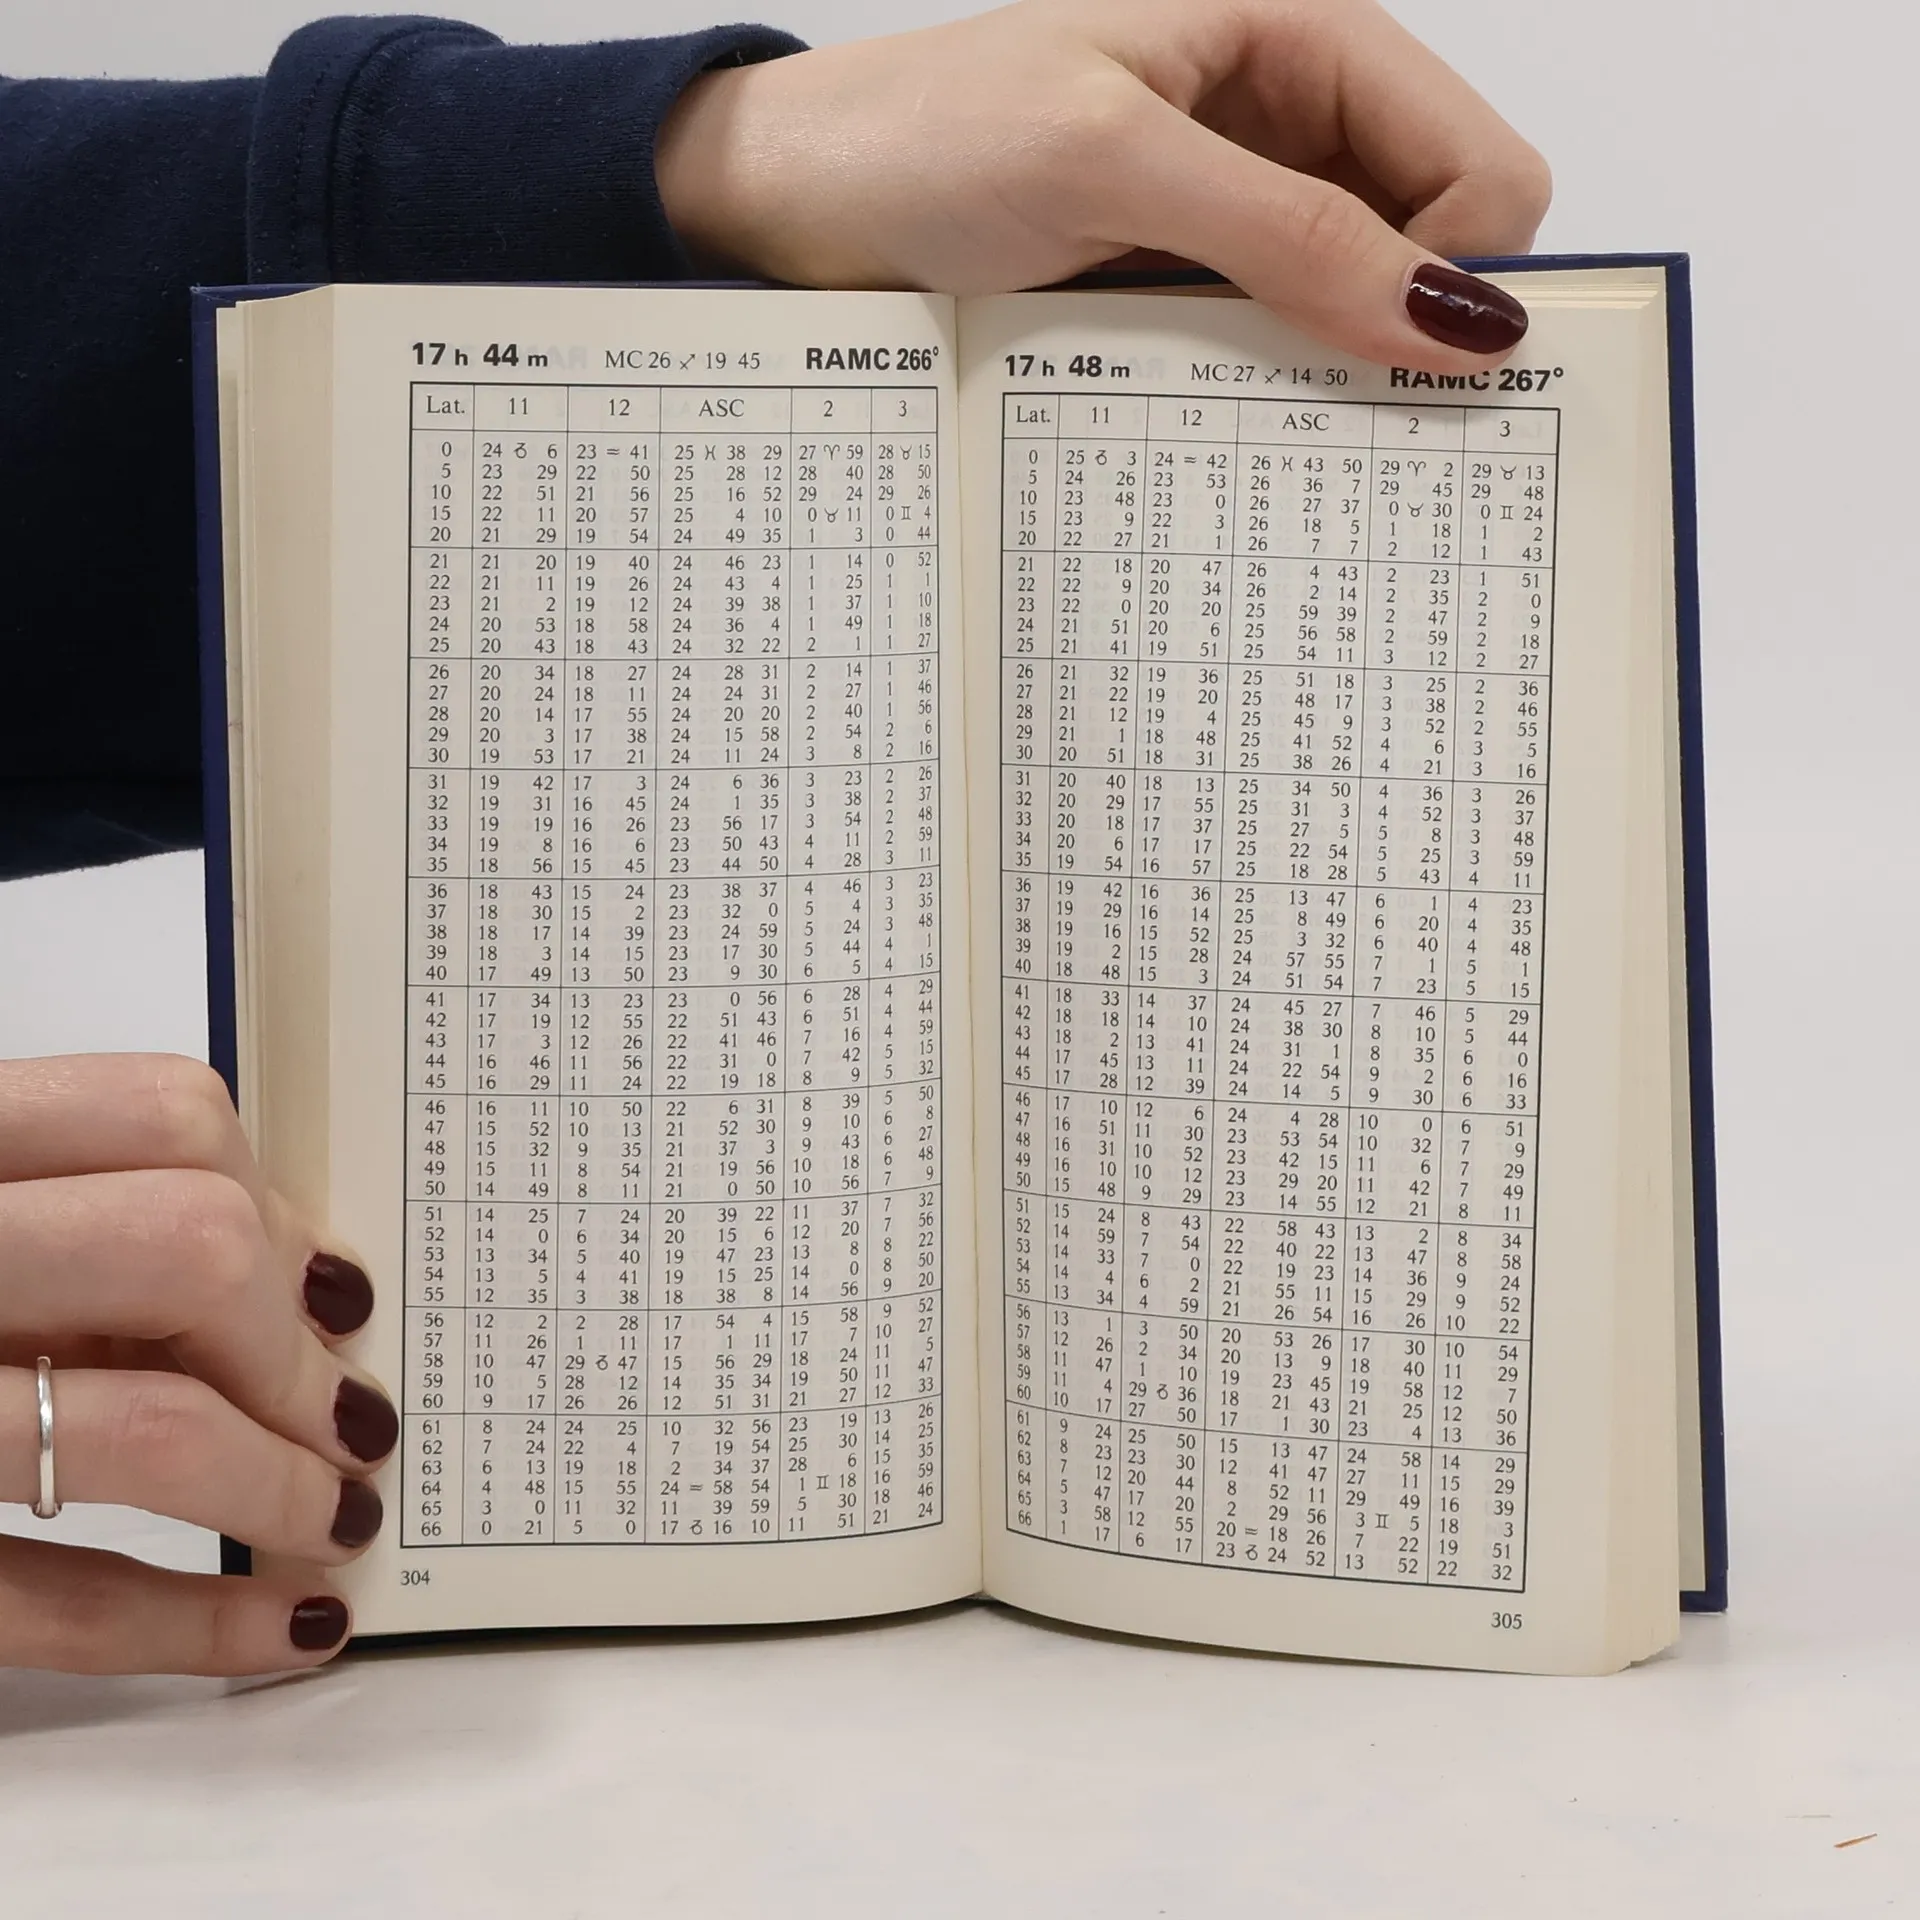 17 h 44 m MC 26 ♐ 19 45 RAMC 266°
Lat. 11 12 ASC 2 3
0 24 ♑ 6 23 ♒ 41 25 ♓ 38 29 27 ♈ 59 28 ♉ 15
5 23 29 22 50 25 28 12 28 40 28 50
10 22 51 21 56 25 16 52 29 24 29 26
15 22 11 20 57 25 4 10 0 ♉ 11 0 ♊ 4
20 21 29 19 54 24 49 35 1 3 0 44
21 21 20 19 40 24 46 23 1 14 0 52
22 21 11 19 26 24 43 4 1 25 1 1
23 21 2 19 12 24 39 38 1 37 1 10
24 20 53 18 58 24 36 4 1 49 1 18
25 20 43 18 43 24 32 22 2 1 1 27
26 20 34 18 27 24 28 31 2 14 1 37
27 20 24 18 11 24 24 31 2 27 1 46
28 20 14 17 55 24 20 20 2 40 1 56
29 20 3 17 38 24 15 58 2 54 2 6
30 19 53 17 21 24 11 24 3 8 2 16
31 19 42 17 3 24 6 36 3 23 2 26
32 19 31 16 45 24 1 35 3 38 2 37
33 19 19 16 26 23 56 17 3 54 2 48
34 19 8 16 6 23 50 43 4 11 2 59
35 18 56 15 45 23 44 50 4 28 3 11
36 18 43 15 24 23 38 37 4 46 3 23
37 18 30 15 2 23 32 0 5 4 3 35
38 18 17 14 39 23 24 59 5 24 3 48
39 18 3 14 15 23 17 30 5 44 4 1
40 17 49 13 50 23 9 30 6 5 4 15
41 17 34 13 23 23 0 56 6 28 4 29
42 17 19 12 55 22 51 43 6 51 4 44
43 17 3 12 26 22 41 46 7 16 4 59
44 16 46 11 56 22 31 0 7 42 5 15
45 16 29 11 24 22 19 18 8 9 5 32
46 16 11 10 50 22 6 31 8 39 5 50
47 15 52 10 13 21 52 30 9 10 6 8
48 15 32 9 35 21 37 3 9 43 6 27
49 15 11 8 54 21 19 56 10 18 6 48
50 14 49 8 11 21 0 50 10 56 7 9
51 14 25 7 24 20 39 22 11 37 7 32
52 14 0 6 34 20 15 6 12 20 7 56
53 13 34 5 40 19 47 23 13 8 8 22
54 13 5 4 41 19 15 25 14 0 8 50
55 12 35 3 38 18 38 8 14 56 9 20
56 12 2 2 28 17 54 4 15 58 9 52
57 11 26 1 11 17 1 11 17 7 10 27
58 10 47 29 ♑ 47 15 56 29 18 24 11 5
59 10 5 28 12 14 35 34 19 50 11 47
60 9 17 26 26 12 51 31 21 27 12 33
61 8 24 24 25 10 32 56 23 19 13 26
62 7 24 22 4 7 19 54 25 30 14 25
63 6 13 19 18 2 34 37 28 6 15 35
64 4 48 15 55 24 ♒ 58 54 1 ♊ 18 16 59
65 3 0 11 32 11 39 59 5 30 18 46
66 0 21 5 0 17 ♑ 16 10 11 51 21 24
304
17 h 48 m MC 27 ♐ 14 50 RAMC 267°
Lat. 11 12 ASC 2 3
0 25 ♑ 3 24 ♒ 42 26 ♓ 43 50 29 ♈ 2 29 ♉ 13
5 24 26 23 53 26 36 7 29 45 29 48
10 23 48 23 0 26 27 37 0 ♉ 30 0 ♊ 24
15 23 9 22 3 26 18 5 1 18 1 2
20 22 27 21 1 26 7 7 2 12 1 43
21 22 18 20 47 26 4 43 2 23 1 51
22 22 9 20 34 26 2 14 2 35 2 0
23 22 0 20 20 25 59 39 2 47 2 9
24 21 51 20 6 25 56 58 2 59 2 18
25 21 41 19 51 25 54 11 3 12 2 27
26 21 32 19 36 25 51 18 3 25 2 36
27 21 22 19 20 25 48 17 3 38 2 46
28 21 12 19 4 25 45 9 3 52 2 55
29 21 1 18 48 25 41 52 4 6 3 5
30 20 51 18 31 25 38 26 4 21 3 16
31 20 40 18 13 25 34 50 4 36 3 26
32 20 29 17 55 25 31 3 4 52 3 37
33 20 18 17 37 25 27 5 5 8 3 48
34 20 6 17 17 25 22 54 5 25 3 59
35 19 54 16 57 25 18 28 5 43 4 11
36 19 42 16 36 25 13 47 6 1 4 23
37 19 29 16 14 25 8 49 6 20 4 35
38 19 16 15 52 25 3 32 6 40 4 48
39 19 2 15 28 24 57 55 7 1 5 1
40 18 48 15 3 24 51 54 7 23 5 15
41 18 33 14 37 24 45 27 7 46 5 29
42 18 18 14 10 24 38 30 8 10 5 44
43 18 2 13 41 24 31 1 8 35 6 0
44 17 45 13 11 24 22 54 9 2 6 16
45 17 28 12 39 24 14 5 9 30 6 33
46 17 10 12 6 24 4 28 10 0 6 51
47 16 51 11 30 23 53 54 10 32 7 9
48 16 31 10 52 23 42 15 11 6 7 29
49 16 10 10 12 23 29 20 11 42 7 49
50 15 48 9 29 23 14 55 12 21 8 11
51 15 24 8 43 22 58 43 13 2 8 34
52 14 59 7 54 22 40 22 13 47 8 58
53 14 33 7 0 22 19 23 14 36 9 24
54 14 4 6 2 21 55 11 15 29 9 52
55 13 34 4 59 21 26 54 16 26 10 22
56 13 1 3 50 20 53 26 17 30 10 54
57 12 26 2 34 20 13 9 18 40 11 29
58 11 47 1 10 19 23 45 19 58 12 7
59 11 4 29 ♑ 36 18 21 43 21 25 12 50
60 10 17 27 50 17 1 30 23 4 13 36
61 9 24 25 50 15 13 47 24 58 14 29
62 8 23 23 30 12 41 47 27 11 15 29
63 7 12 20 44 8 52 11 29 49 16 39
64 5 47 17 20 2 29 56 3 ♊ 5 18 3
65 3 58 12 55 20 ♒ 18 26 7 22 19 51
66 1 17 6 17 23 ♑ 24 52 13 52 22 32
305